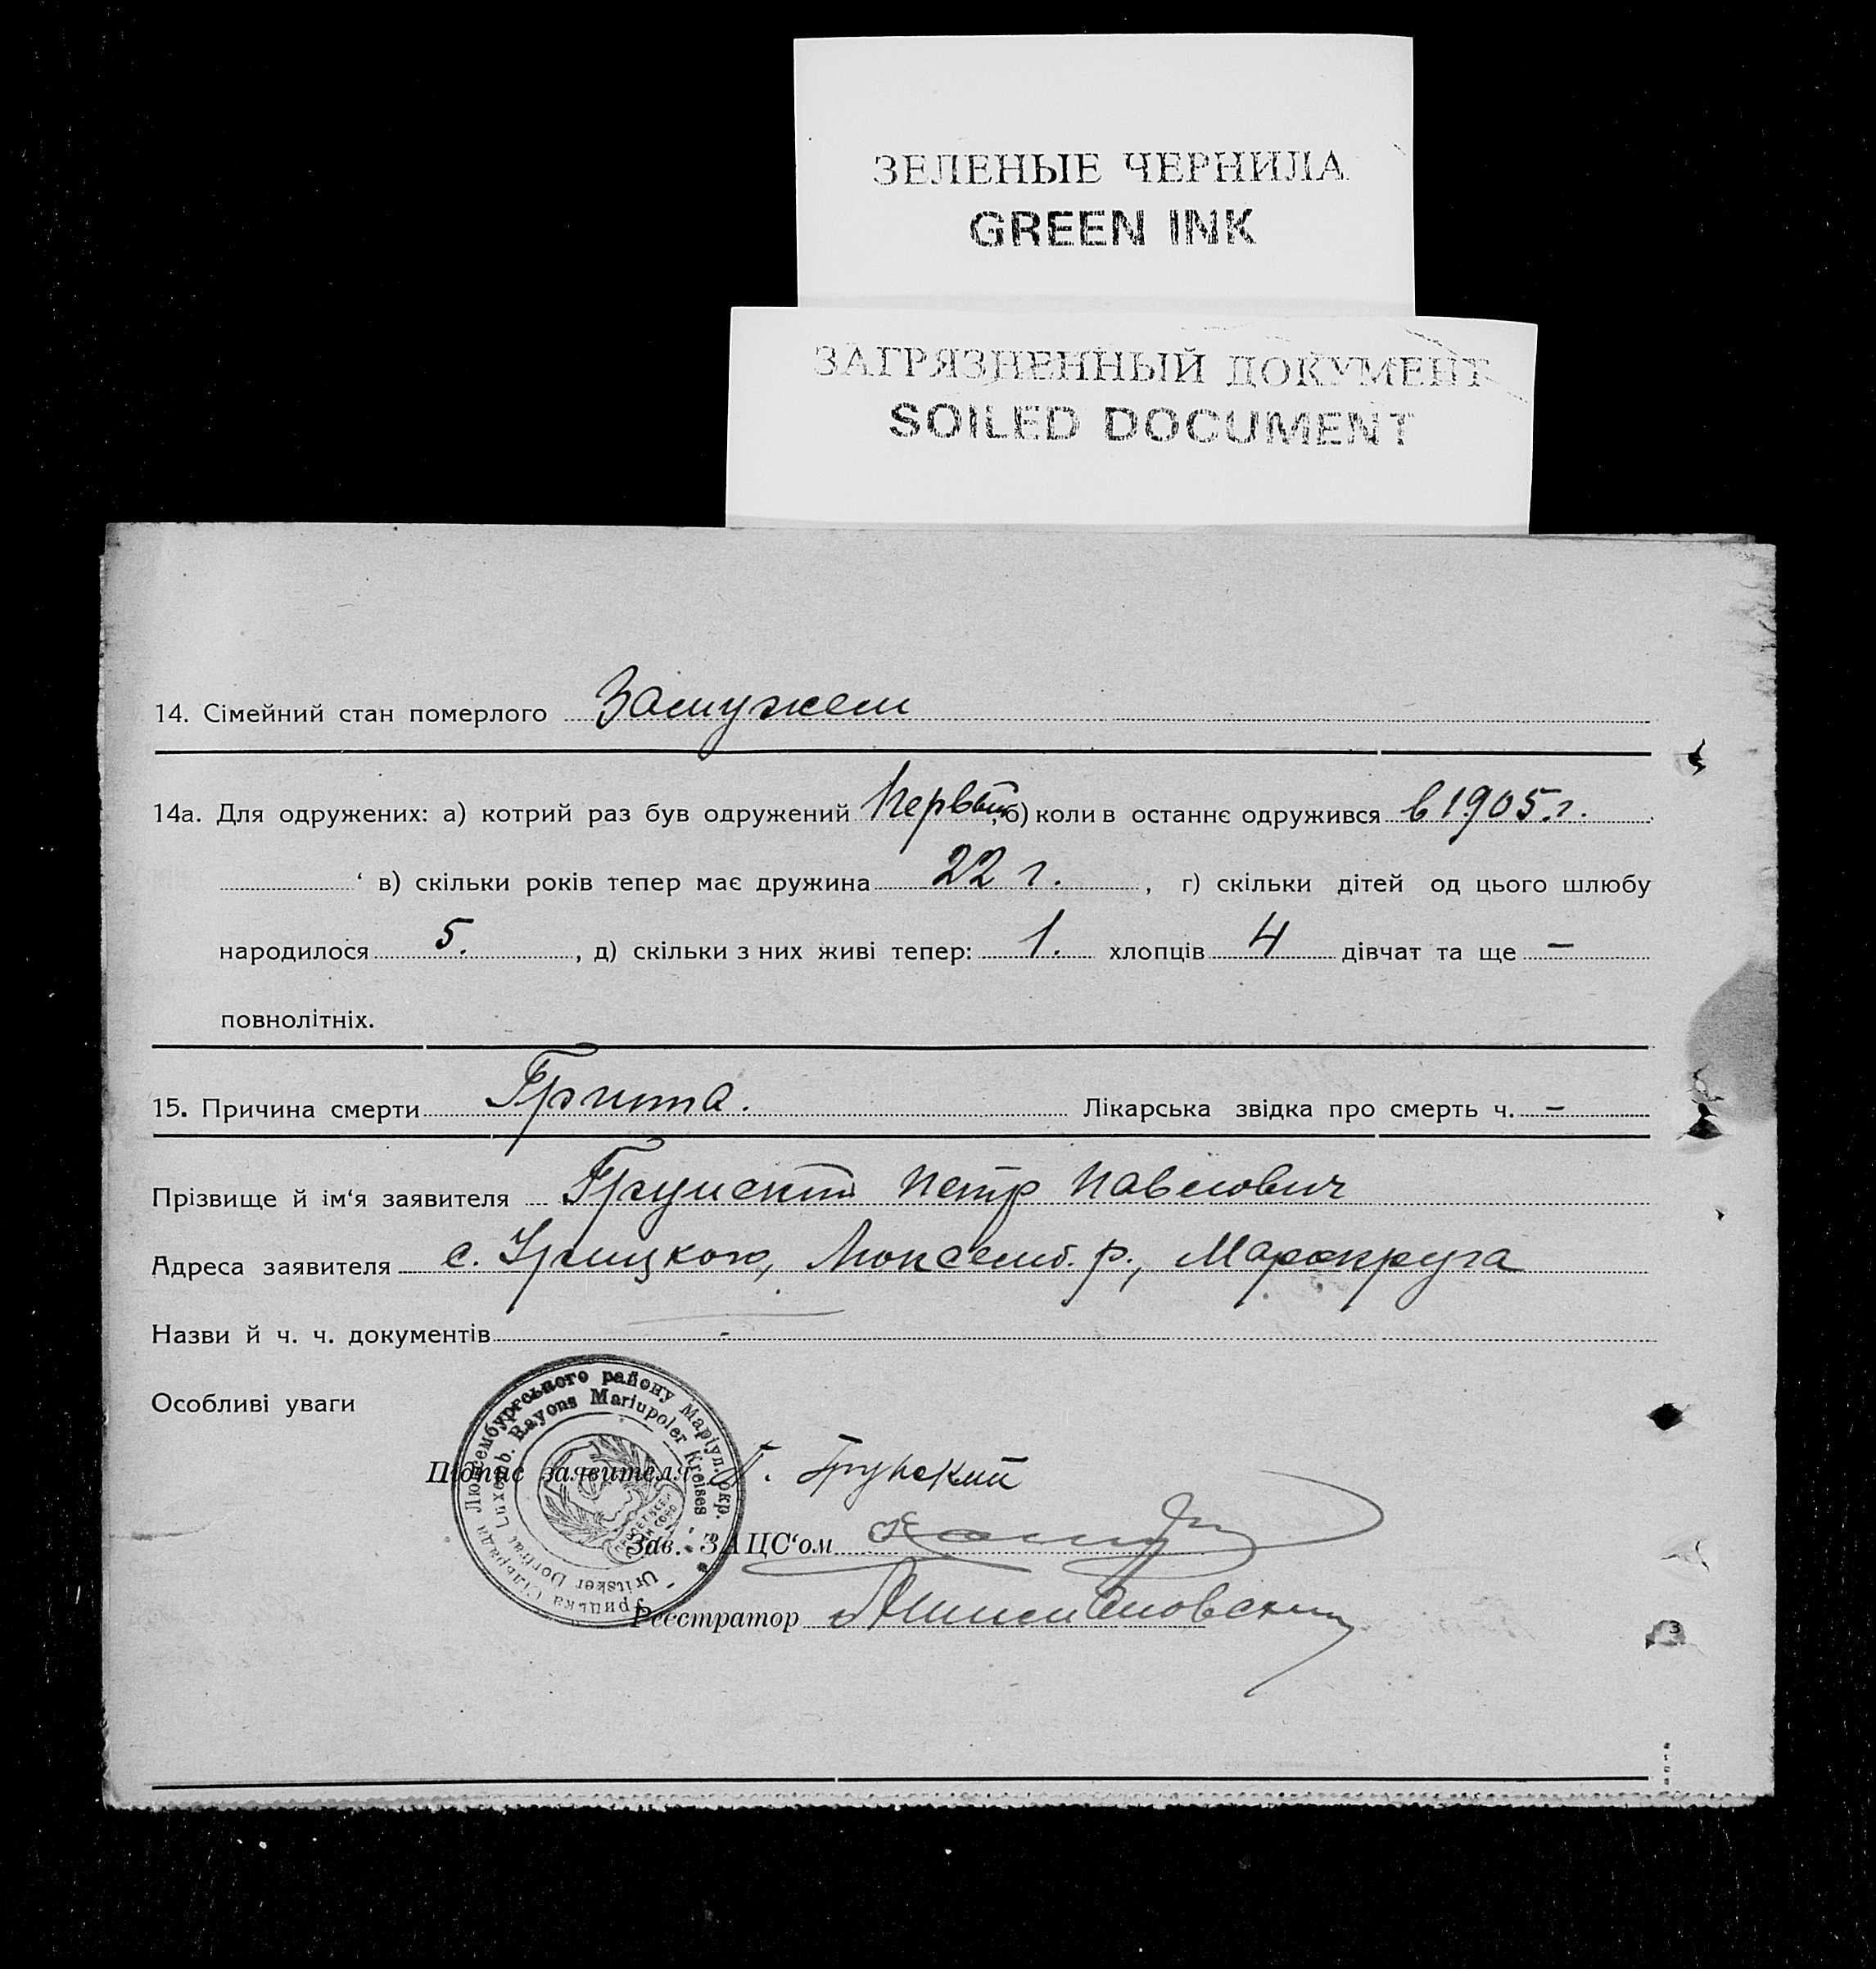 ЗЕЛЕНЫЕ ЧЕРНИЛА
GREEN INK
ЗАГРЯЗНЕННЫЙ ДОКУМЕНТ
SOILED DOCUMENT
14. Сімейний стан померлого Замужем
14а. Для одружених: а) котрий раз був одружений Первый, б) коли в останнє одружився в 1905 г.
‘ в) скільки років тепер має дружина 22 г. , г) скільки дітей од цього шлюбу
народилося 5. , д) скільки з них живі тепер: 1. хлопців 4 дівчат та ще —
повнолітніх.
15. Причина смерти Гриппа. Лікарська звідка про смерть ч. —
Прізвище й ім‘я заявителя Грунский Петр Павлович
Адреса заявителя с. Урицкое, Люксемб. р., Мар. округа
Назви й ч. ч. документів -
Особливі уваги
Урицька Сільрада Люксембургського району Маріуп. окр.
Uritsker Dorfrat Luxemb. Rayons Mariupoler Kreises
Підпис заявителя П. Грунский
Зав. ЗАЦС‘ом
Реєстратор
3